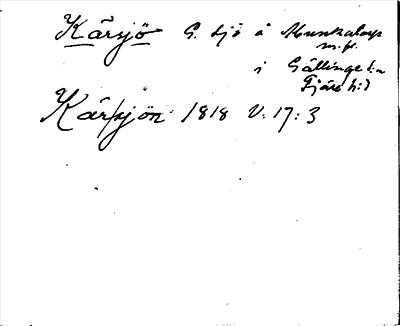 Kärsjö G. sjö å Munkaloys
m. fl.
i Gällinge s:n
Fjäre h:d
Kärsjön 1818 V: 17: 3